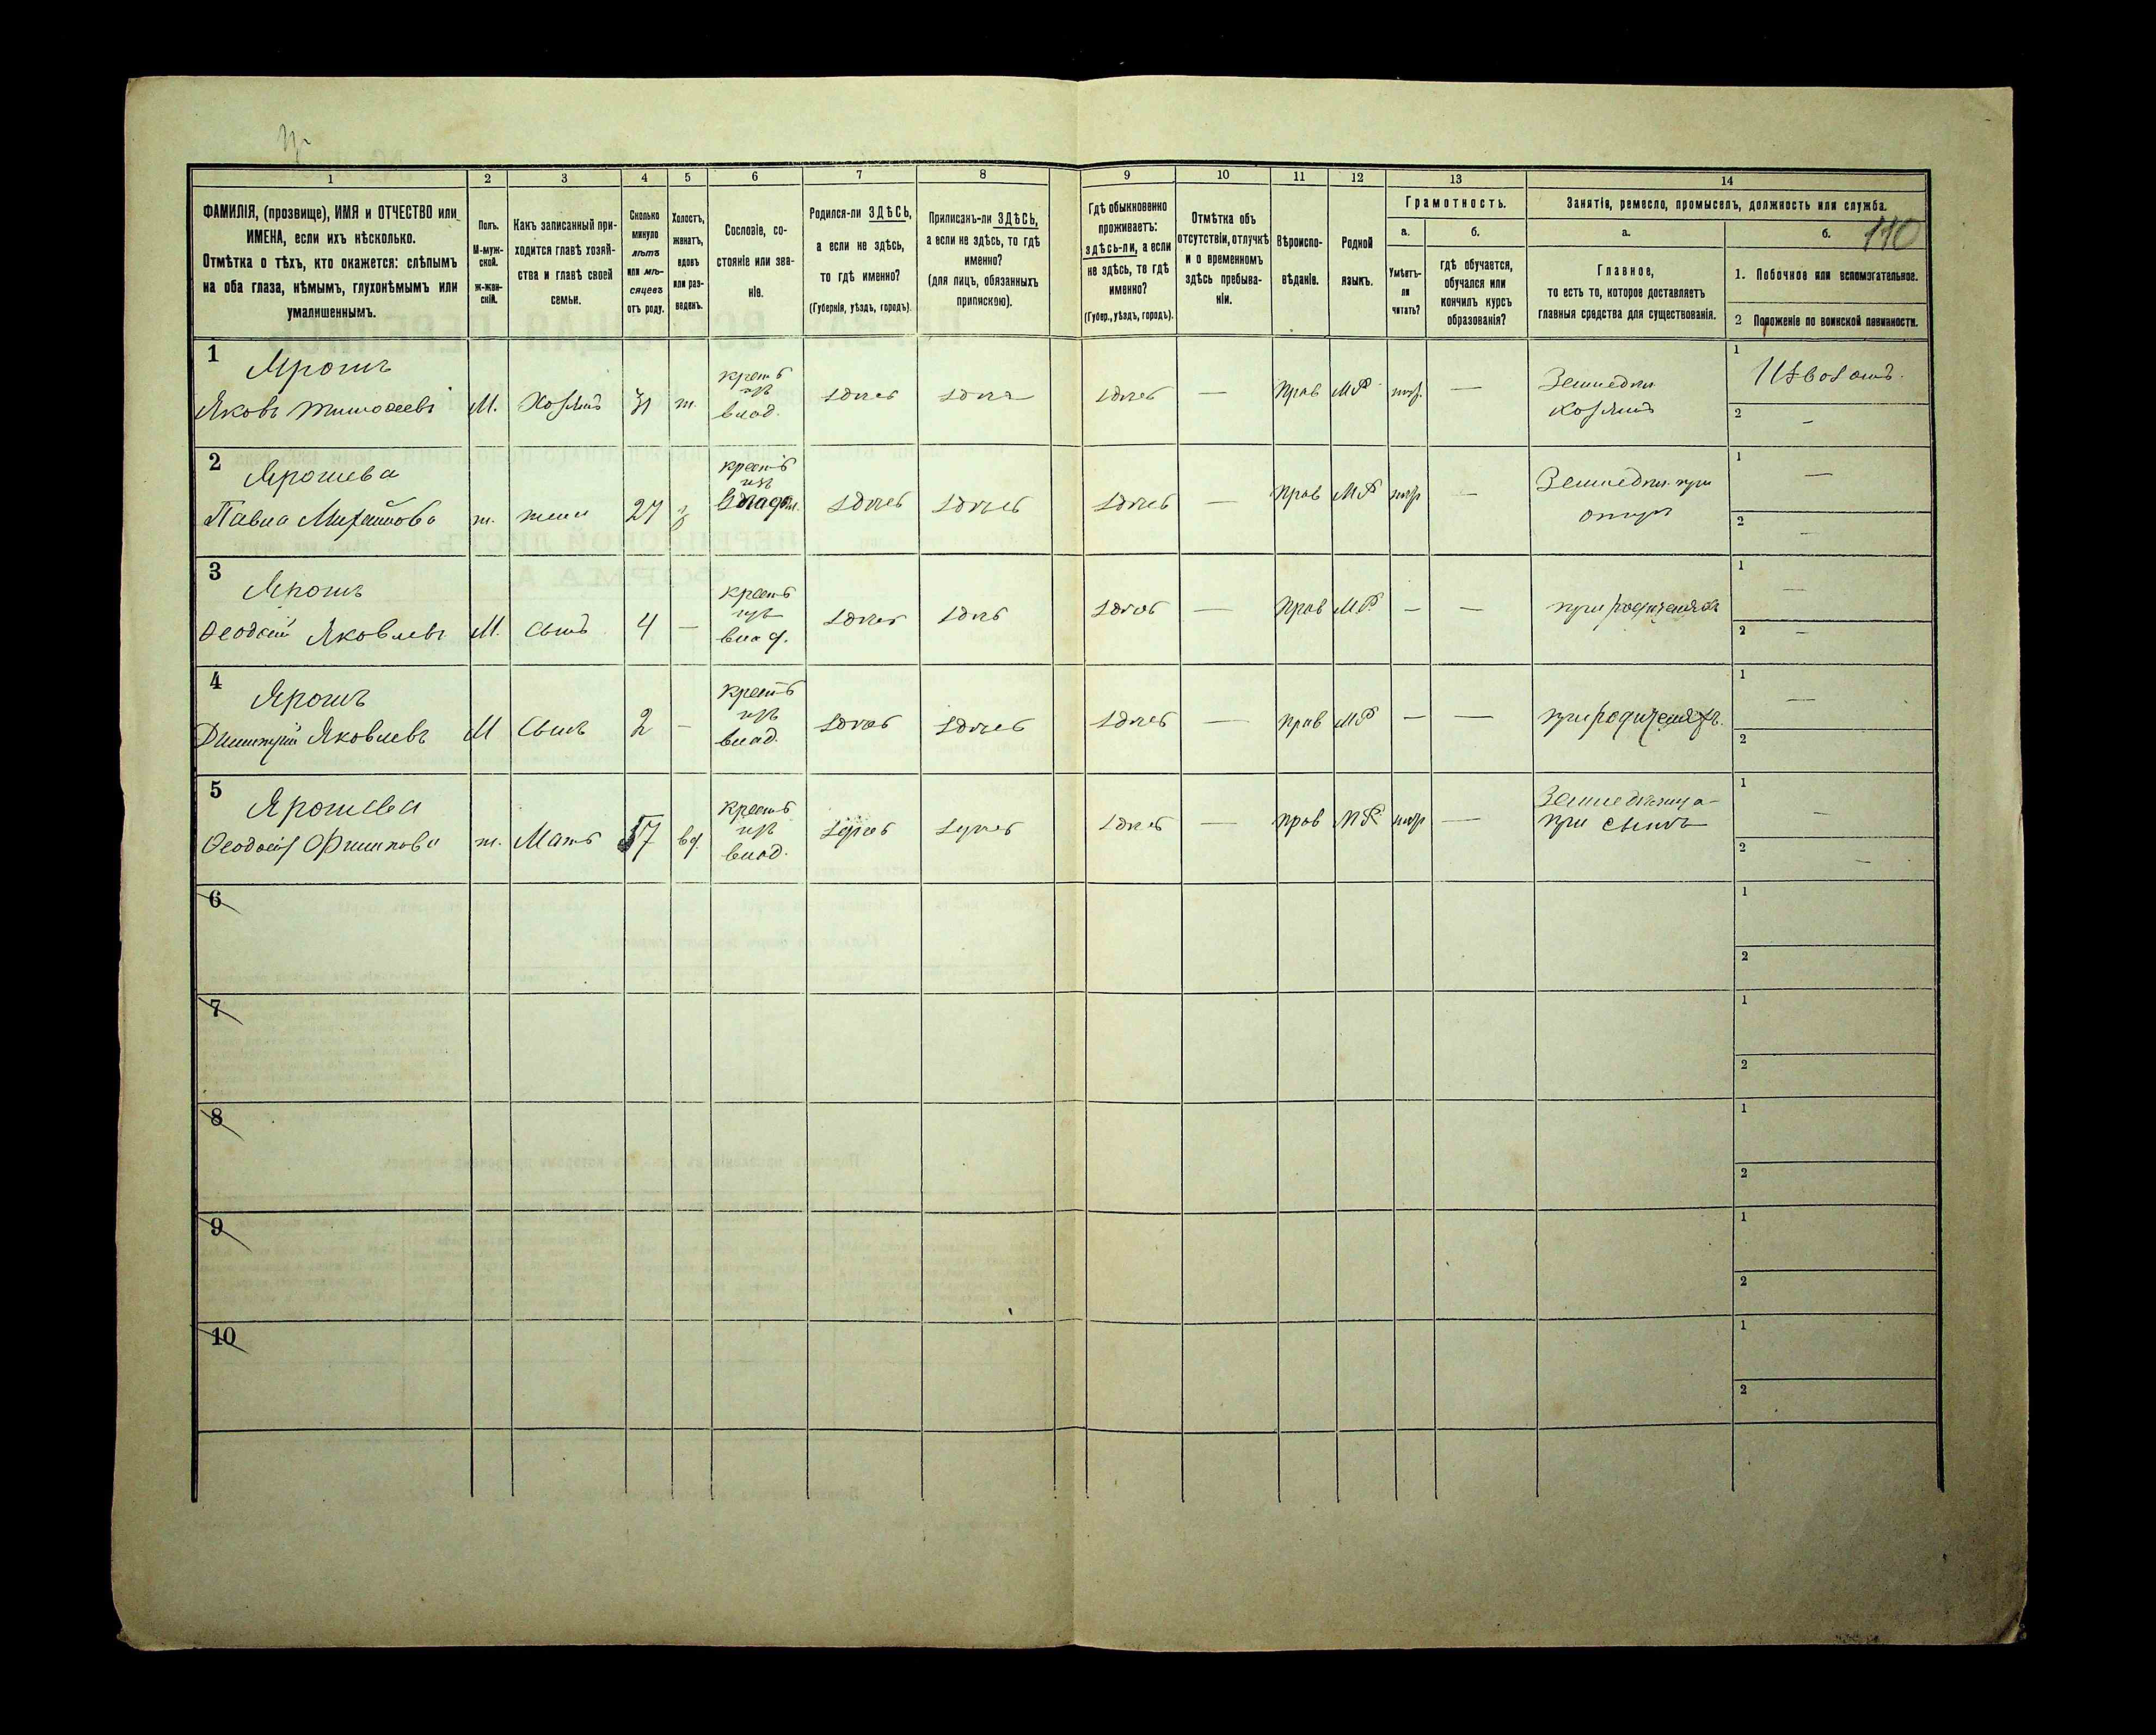 110
1
2
3
4
5
6
7
8
9
10
11
12
13
14
ФАМИЛІЯ, (прозвище), ИМЯ и ОТЧЕСТВО или
ИМЕНА, если ихъ нѣсколько.
Отмѣтка о тѣхъ, кто окажется: слѣпымъ
на оба глаза, нѣмымъ, глухонѣмымъ или
умалишеннымъ.
Полъ.
М-муж-
ской.
ж-жен-
скій.
Какъ записанный при-
ходится главѣ хозяй-
ства и главѣ своей
семьи.
Сколько
минуло
лѣтъ
или мѣ-
сяцевъ
отъ роду.
Холостъ,
женатъ,
вдовъ
или раз-
веденъ.
Сословіе, со-
стояніе или зва-
ніе.
Родился-ли ЗДѢСЬ,
а если не здѣсь,
то гдѣ именно?
(Губернія, уѣздъ, городъ).
Приписанъ-ли ЗДѢСЬ,
а если не здѣсь, то гдѣ
именно?
(для лицъ, обязанныхъ
припискою).
Гдѣ обыкновенно
проживаетъ:
здѣсь-ли, а если
не здѣсь, то гдѣ
именно?
(Губер., уѣздъ, городъ).
Отмѣтка объ
отсутствіи, отлучкѣ
и о временномъ
здѣсь пребыва-
ніи.
Вѣроиспо-
вѣданіе.
Родной
языкъ.
Грамотность.
а.
Умѣетъ-
ли
читать?
б.
гдѣ обучается,
обучался или
кончилъ курсъ
образованія?
Занятія, ремесло, промыселъ, должность или служба.
а.
Главное,
то есть то, которое доставляетъ
главныя средства для существованія.
б.
1. Побочное или вспомогательное.
2 Положеніе по воинской повинности.
1
Ярошъ
Яковъ Тимофеевъ
М.
Хозяинъ
31
ж.
крест
изъ
влад.
здѣсь
здѣсь
здѣсь
—
прав
МР
—
Земледѣл
хозяинъ
1
Извозомъ.
2
—
2
Ярошева
Павла Михайлова
ж.
жена
27
з
крест
изъ
здѣсь
здѣсь
здѣсь
—
прав
МР
—
Земледѣл. при
1
—
2
—
3
Ярошъ
Феодосій Яковлевъ
М.
Сынъ
4
—
крест
изъ
влад.
здѣсь
здѣсь
здѣсь
—
прав
МР
—
—
при родителяхъ
1
—
2
—
4
Ярошъ
Димитрій Яковлевъ
М
Сынъ
2
—
крест
изъ
влад.
здѣсь
здѣсь
здѣсь
—
прав
МР
—
—
при родителяхъ.
1
—
2
5
Ярошева
Феодосія Филипова
ж.
Мать
57
вд.
крест
изъ
влад.
здѣсь
здѣсь
здѣсь
—
прав
МР.
—
при сынѣ
1
—
2
—
6
1
2
7
1
2
8
1
2
9
1
2
10
1
2